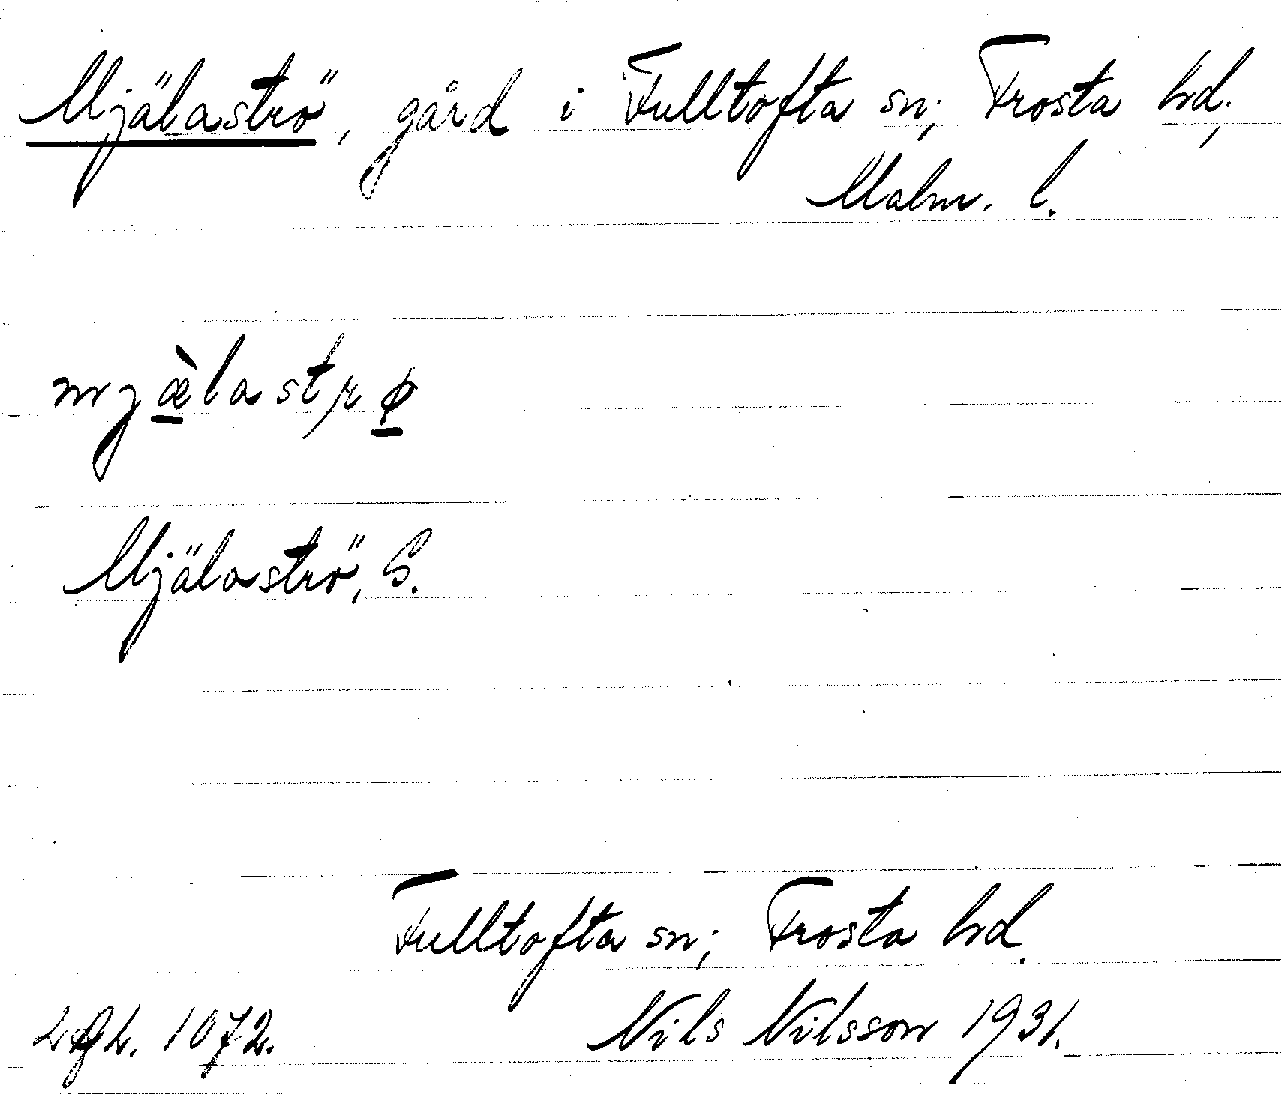 Mjälaströ, gård i Fulltofta sn; Frosta hd.,
Malm. l.
mjæ̀lastrø
Mjälaströ, G.
Fulltofta sn; Frosta hd.
1072. Nils Nilsson 1931.